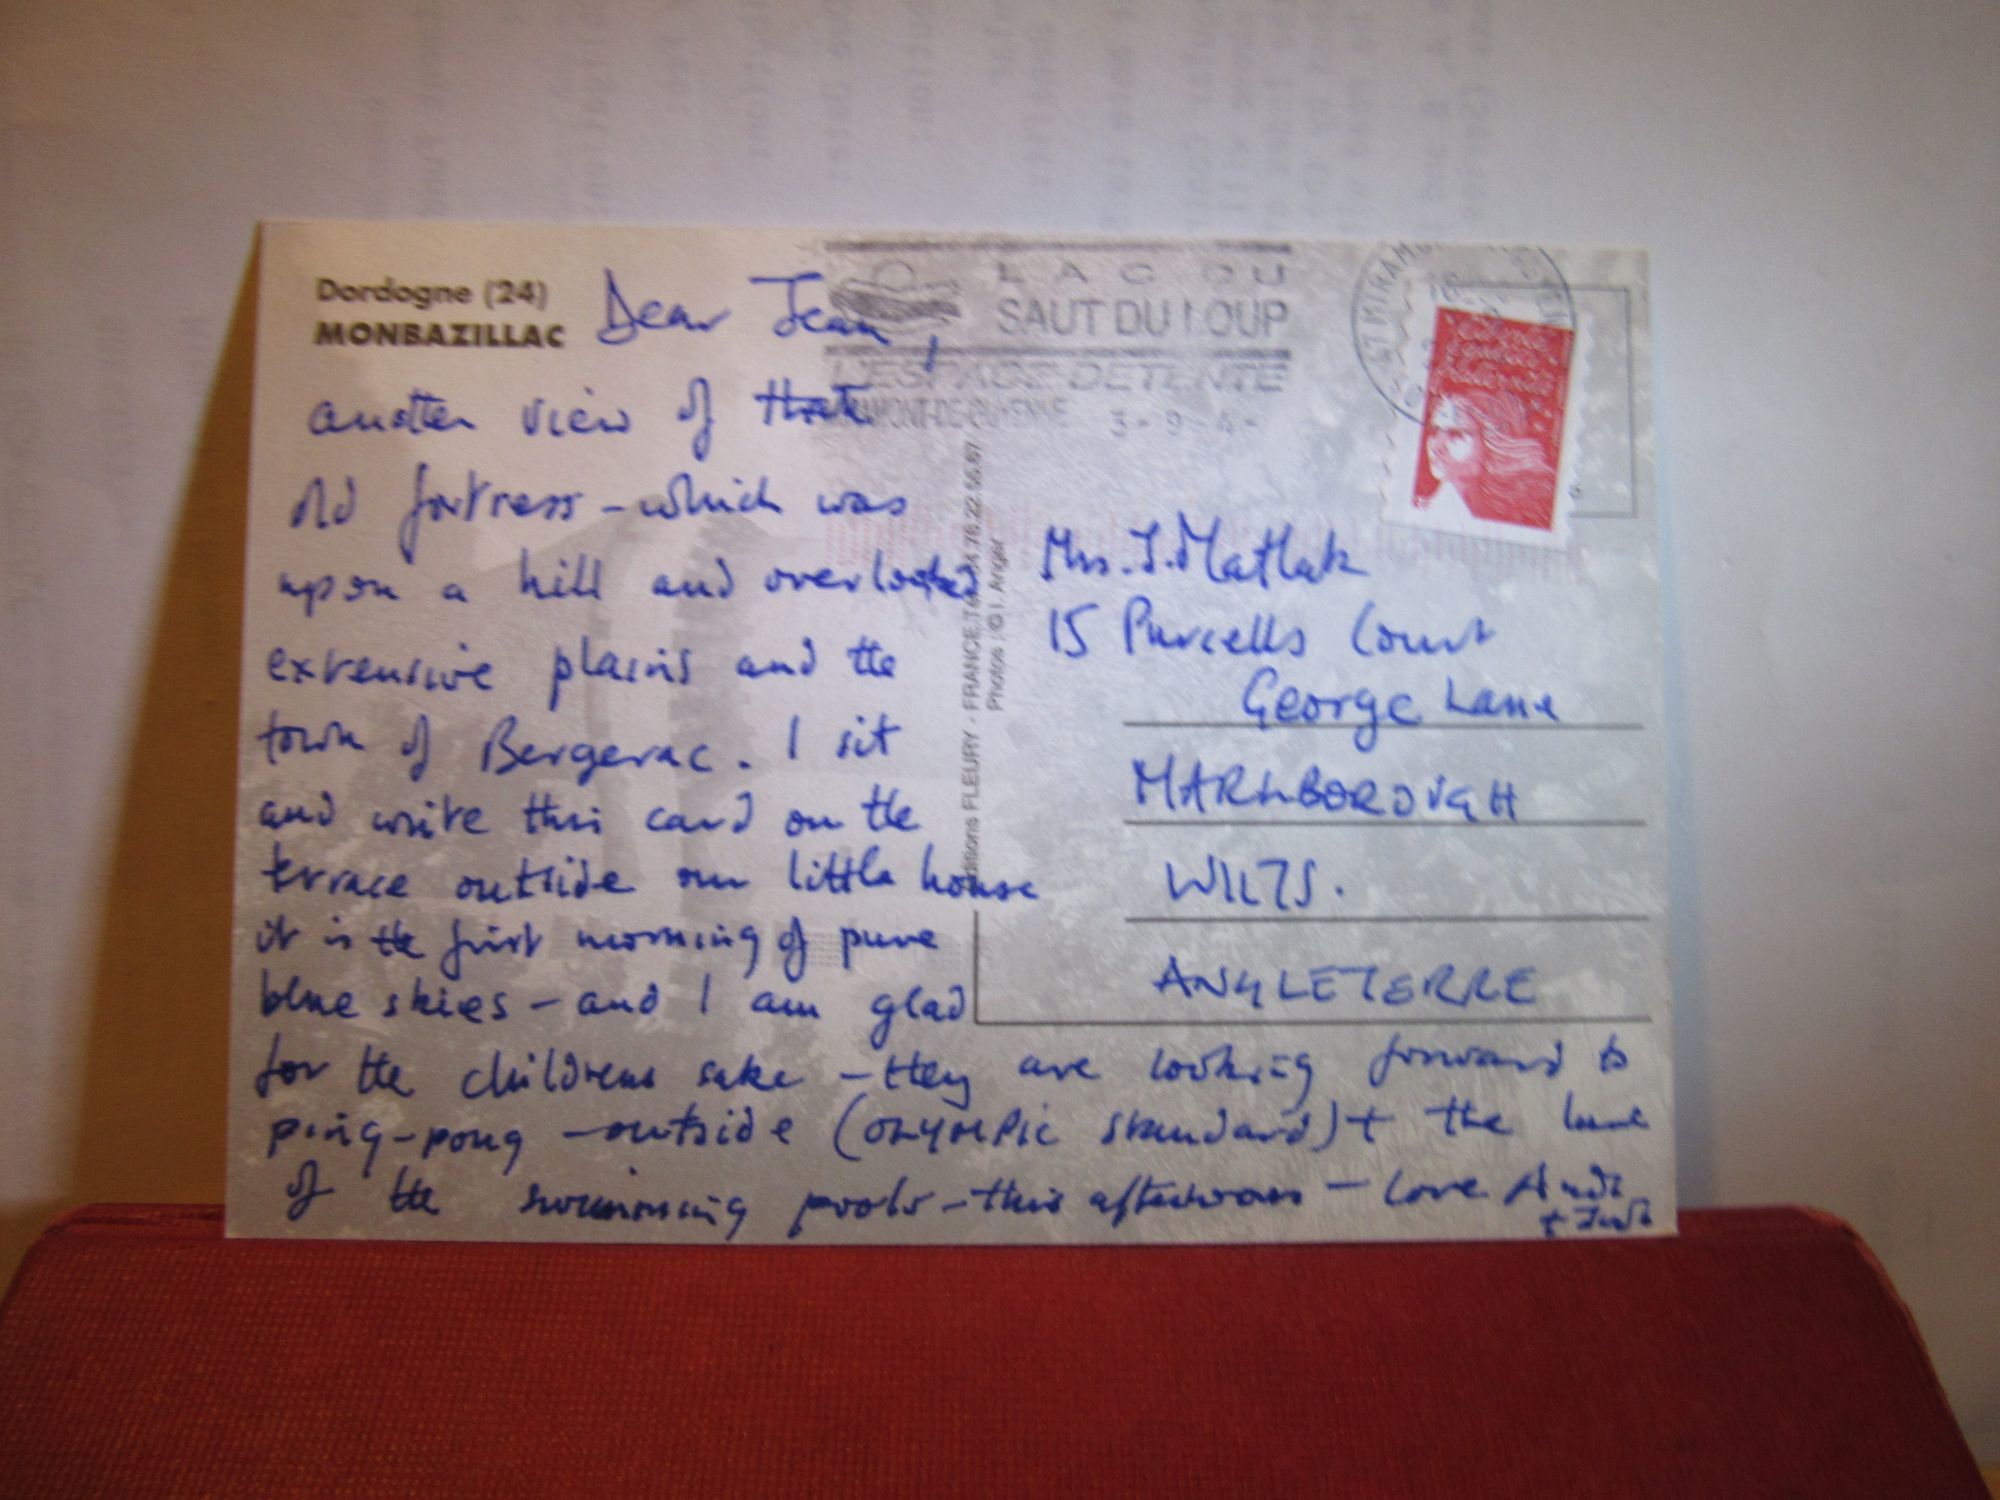 Dordogne (24)
MONBAZILLAC
Dear Jean,
another view of that
old fortress - which was
upon a hill and overlooked
extensive plains and the
town of Bergerac. I sit
and write this card on the
terrace outside our little house
it is the first morning of pure
blue skies - and I am glad
for the childrens sake - they are looking forward to
ping-pong - outside (OLYMPIC standard) + the
of the swimming pools - this afternoon - Love Andi
+
LAC DU
SAUT DU LOUP
L'ESPACE DETENTE
MONT-DE-GUYENNE 3-9-4-
47 MIRAM
liberté
égalité
fraternité
Editions FLEURY - FRANCE 76 22 55 67
Photos : © I. Anger
Mrs. J. Matlak
15 Purcells Court
George Lane
MARLBOROUGH
WILTS.
ANGLETERRE